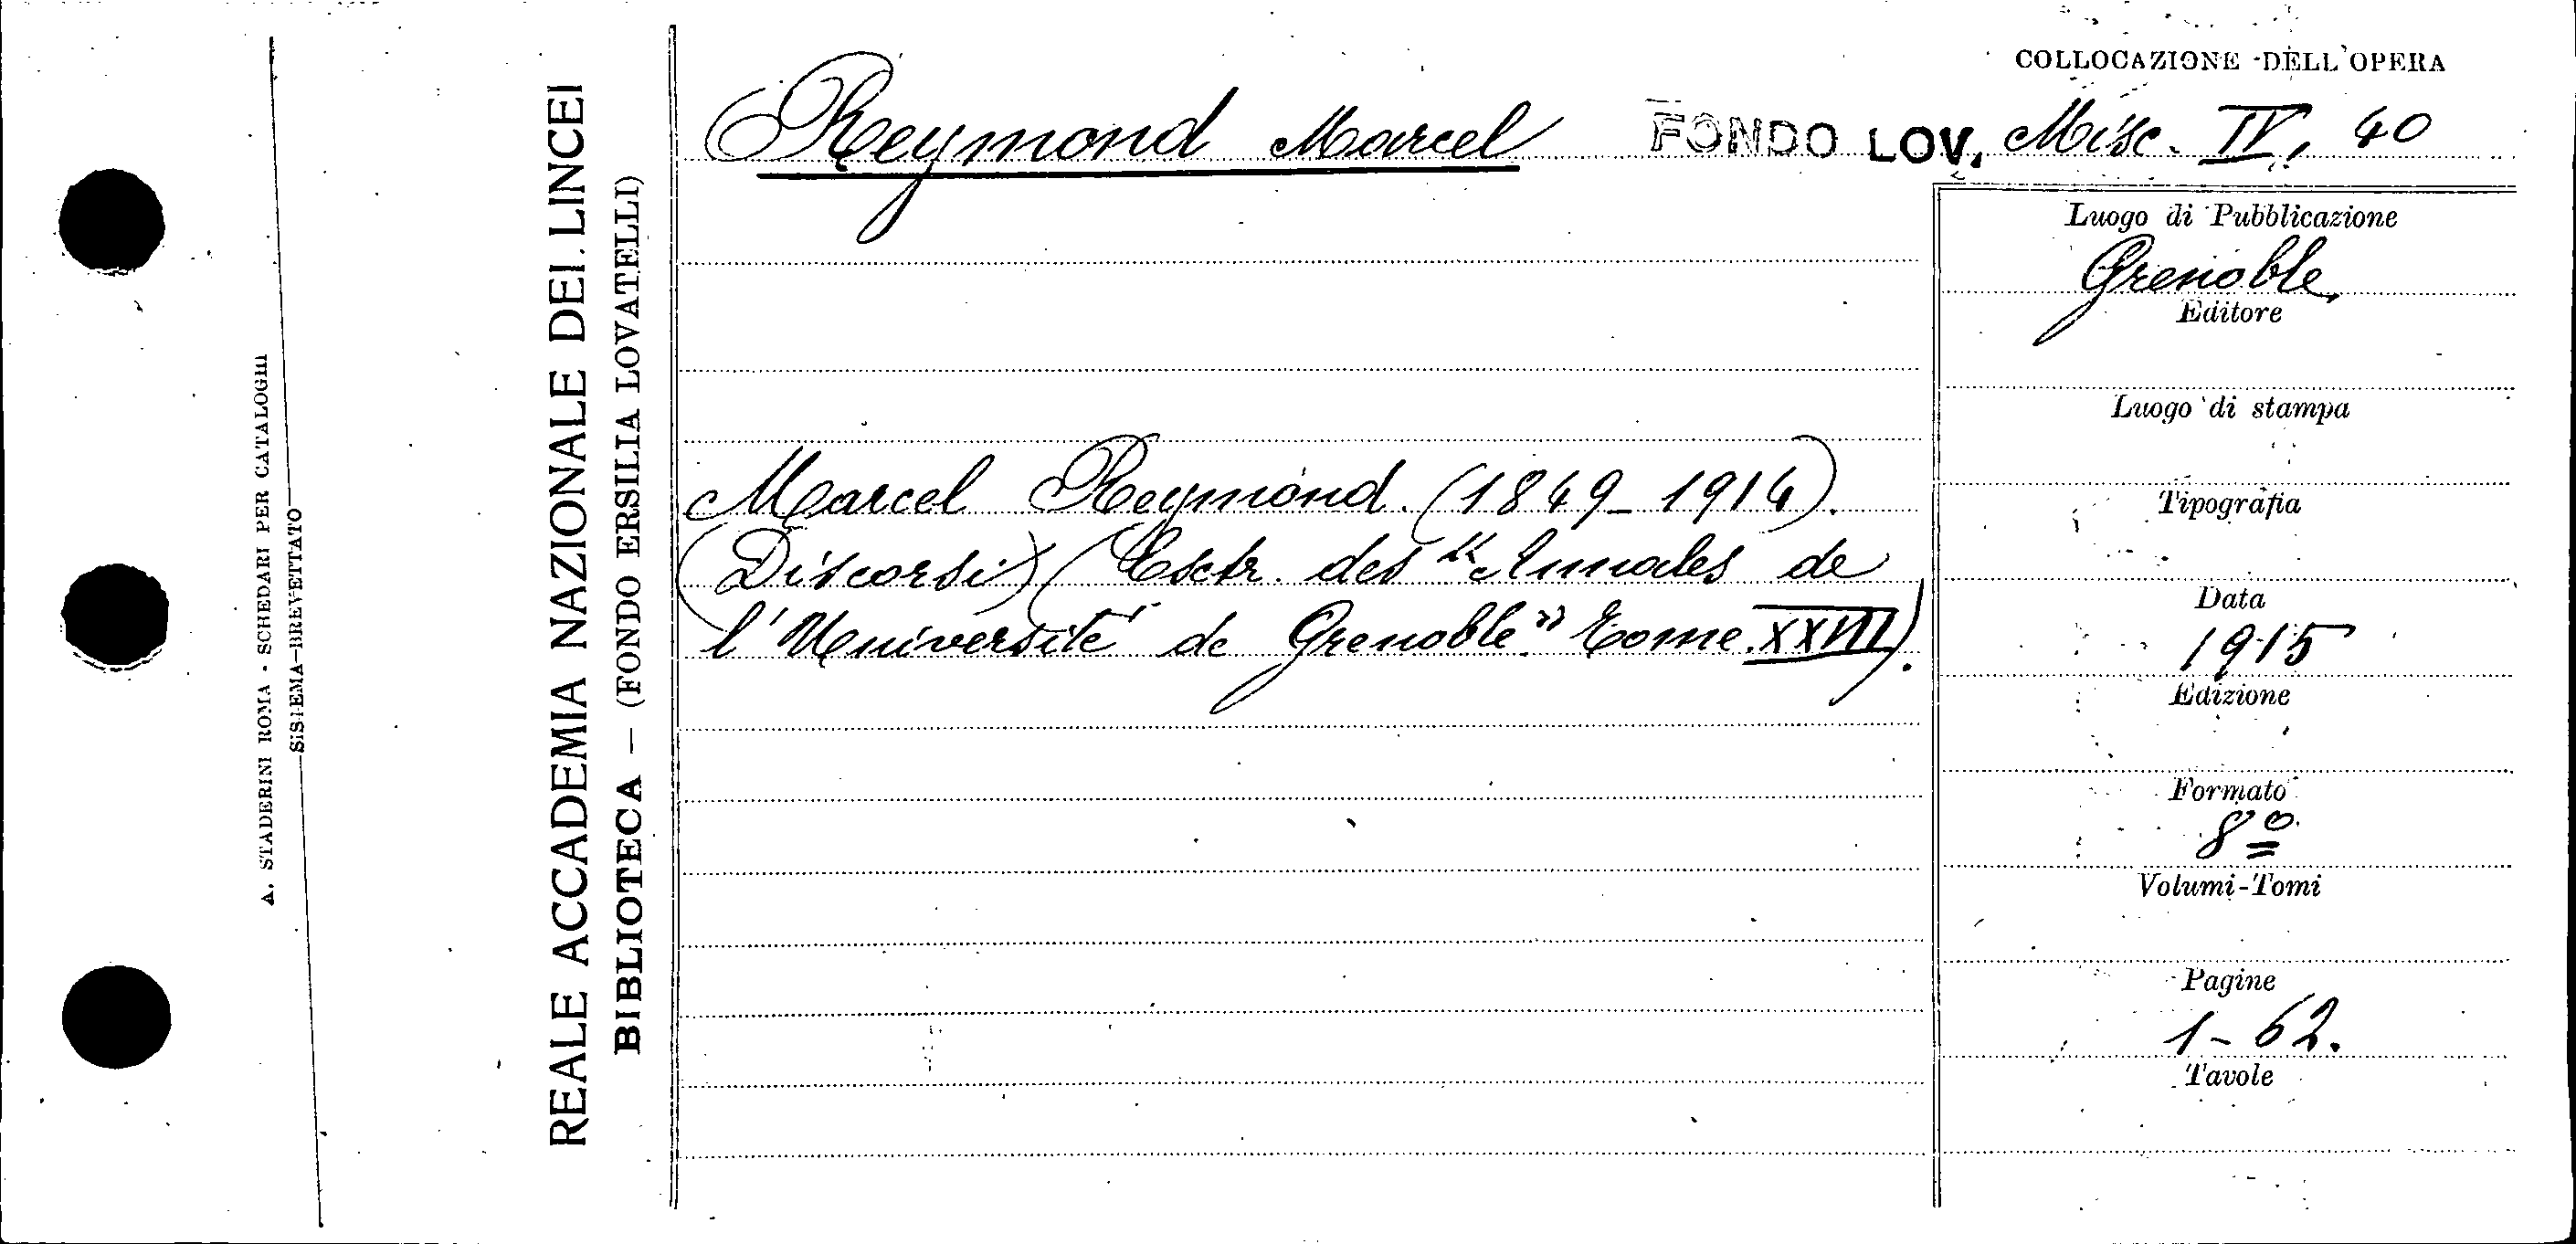 A. STADERINI ROMA - SCHEDARI PER CATALOGHI
SISTEMA BREVETTATO
REALE ACCADEMIA NAZIONALE DEI LINCEI
BIBLIOTECA — (FONDO ERSILIA LOVATELLI)
COLLOCAZIONE DELL'OPERA
Reymond Marcel FONDO LOV. Misc. IV, 40
Marcel Reymond. (1849-1914).
(Discorsi) (Extr. des "Annales de
l'Université de Grenoble." Tome XXVII).
Luogo di Pubblicazione
Grenoble
Editore
Luogo di stampa
Tipografia
Data
1915
Edizione
Formato
8º
Volumi-Tomi
Pagine
1-62.
Tavole